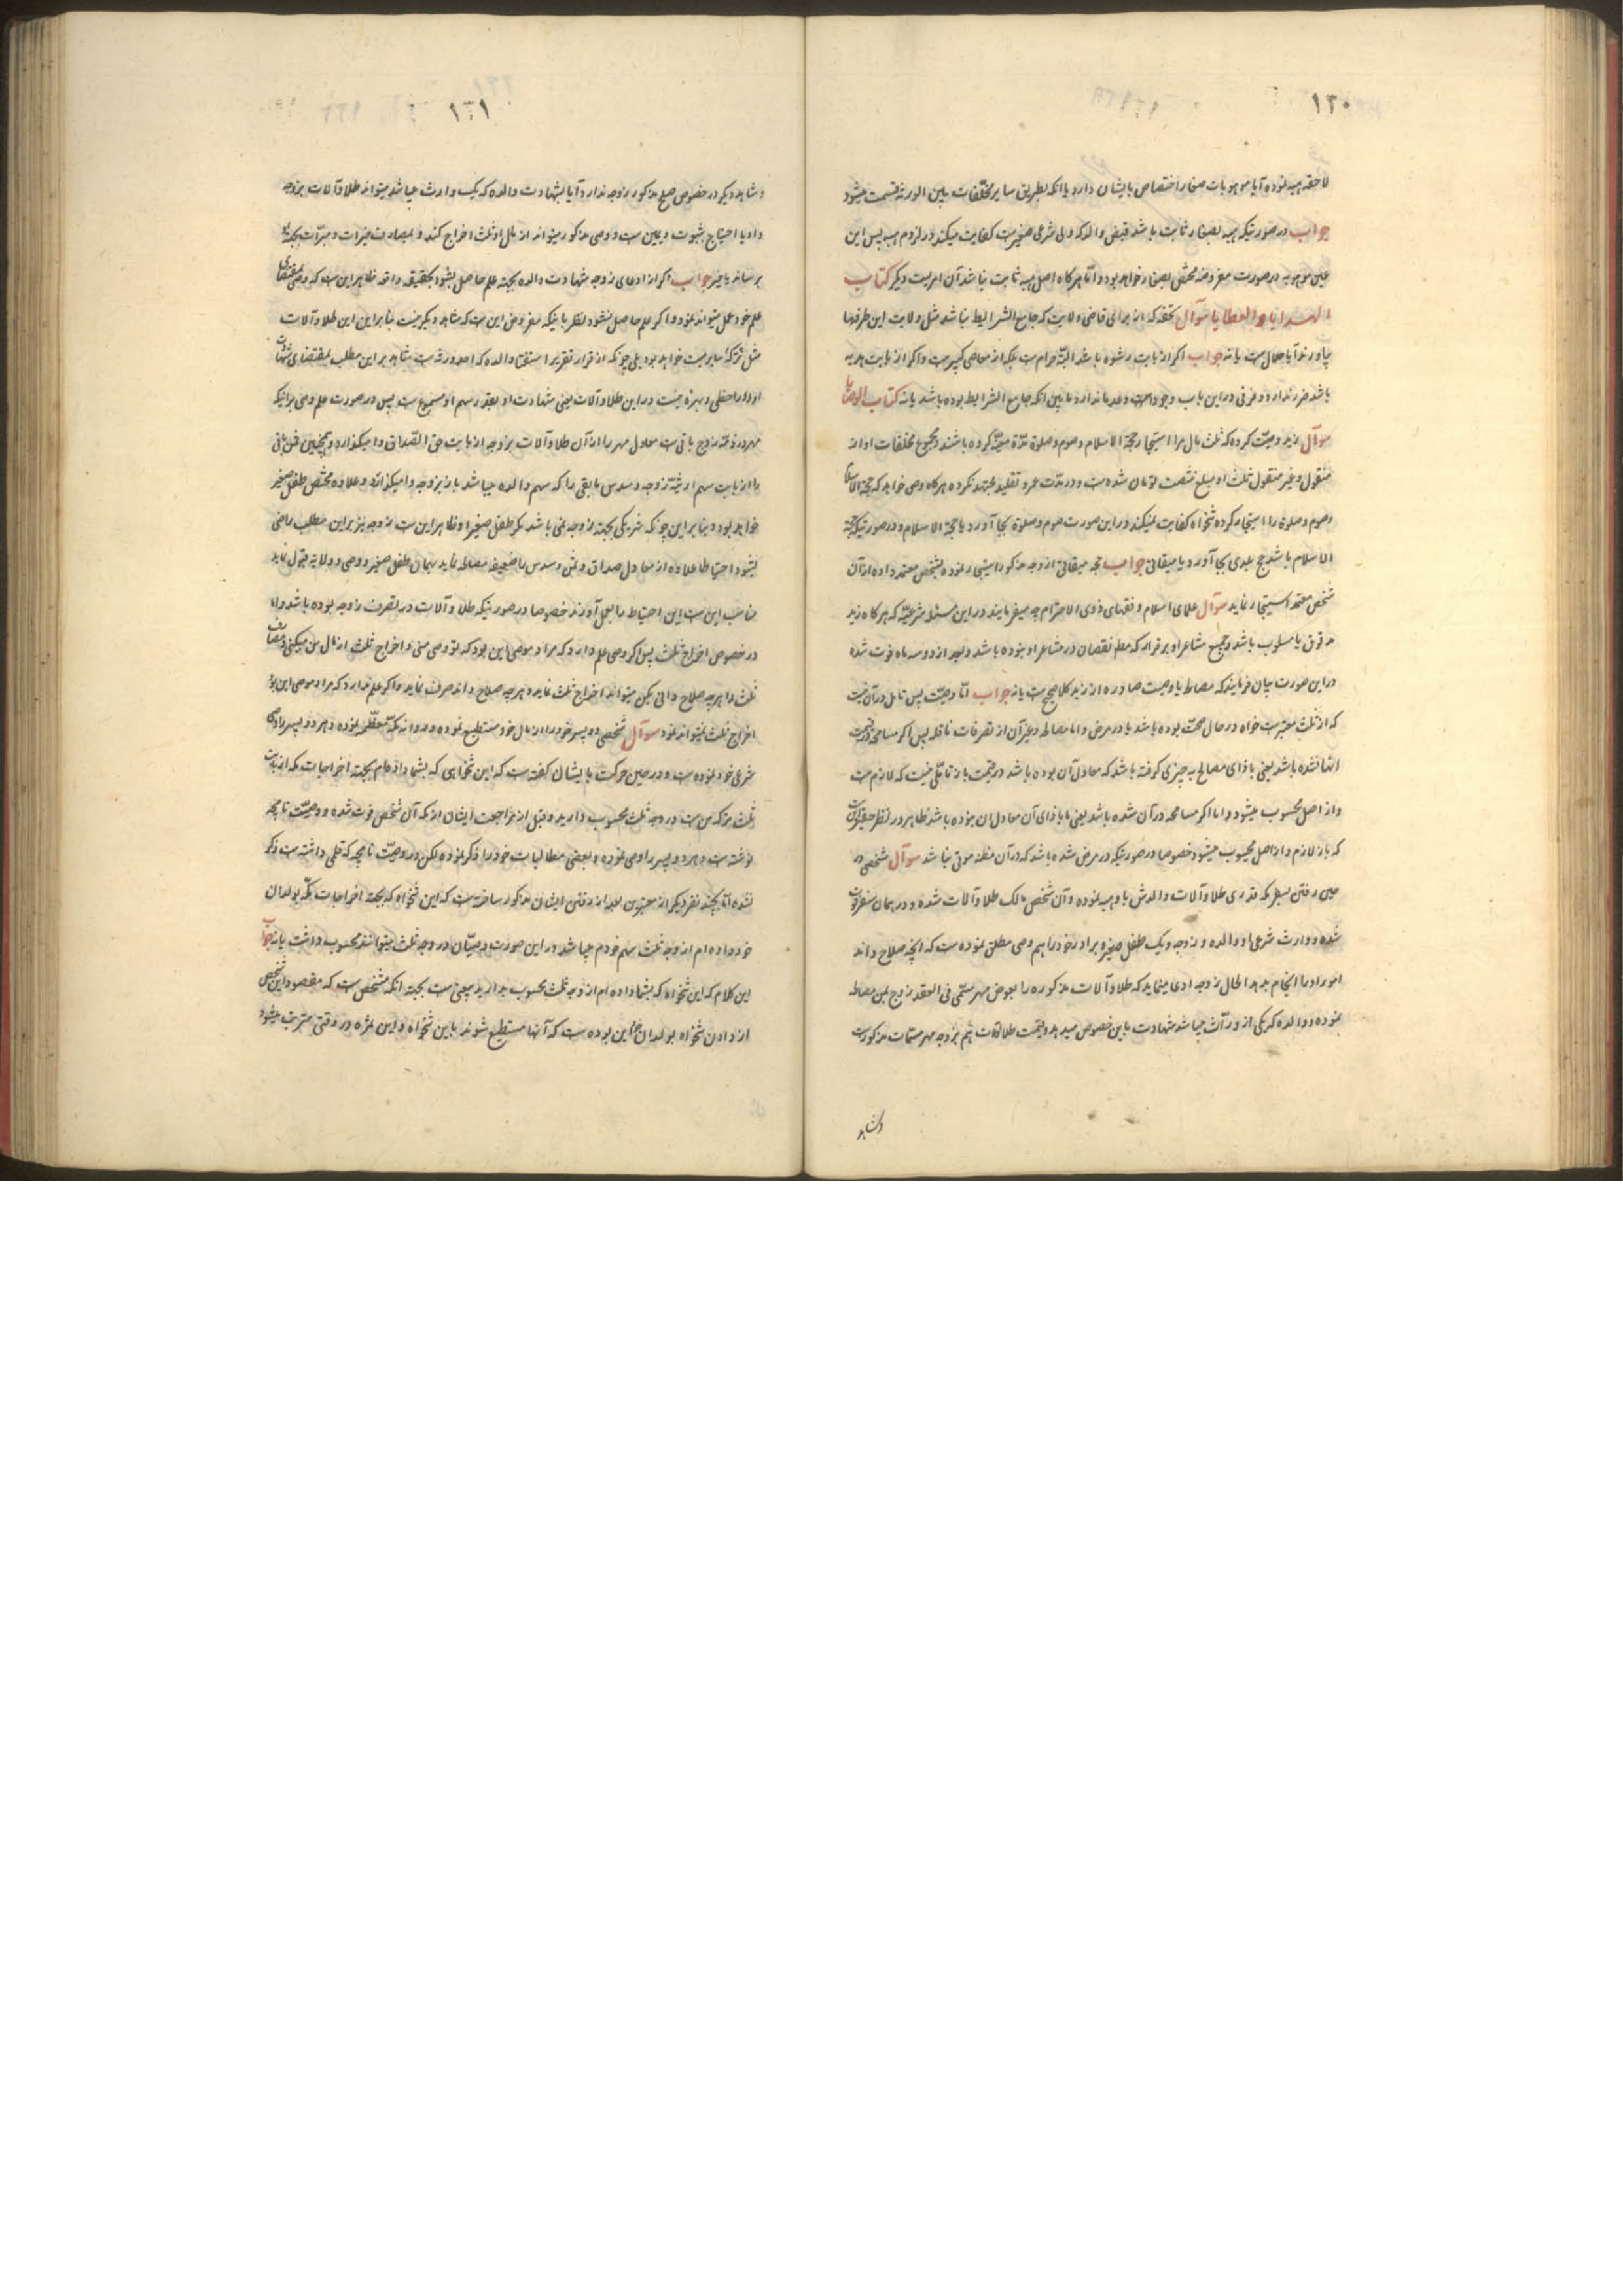 ١٣٠
لاحقه هبه نموده آیا موهوبات صغار اختصاص بایشان دارد یا انکه بطریق سایر مخلّفات بین الورثه قسمت میشود
جواب در صورتیکه هبه بصغار ثابت باشد قبض والد که ولی شرعی صغیر است کفایت میکند در لزوم هبه پس این
عین موهوبه در صورت مفروضه مختص بصغار خواهد بود و امّا هرکاه اصل هبه ثابت نباشد آن امریست دیکر کتاب
الهدایا و العطایا سوآل تحفه که از برای قاضی ولایت که جامع الشرایط نباشد مثل ولایت این طرفها
بیاورند آیا حلال است یا نه جواب اکر از بابت رشوه باشد البتّه حرام است بلکه از معاصی کبیره است و اکر از بابت هدیه
باشد ضرر ندارد و فرقی در این باب وجودا و عدما ندارد مابین انکه جامع الشرایط بوده باشد یا نه کتاب الوصایا
سوآل زید وصیّت کرده که ثلث مال مرا استیجار حجّة الاسلام و صوم و صلوة مدّة معیّنه کرده باشند و مجموع مخلفات او از
منقول و غیر منقول ثلث او مبلغ شصت تومان شده است و در مدّت عمر و تقلید مجتهد نکرده هرکاه وصی خواهد که حجة الاسلام
و صوم و صلوة را استیجار کرده تنخواه کفایت نمیکند در این صورت صوم و صلوة بجا آورد یا حجة الاسلام و در صورتیکه حجة
الاسلام باشد حج بلدی بجا آورد یا میقاتی جواب حجه میقاتی از وجه مذکور استیجار نموده بشخص معتمد داده از آن
شخص معتمد استیجار نماید سوآل علمای اسلام و فقهای ذوی الاحترام چه میفرمایند در این مسئله شرعیّه که هرکاه زید
مدقوق یا مسلوب باشد و جمیع مشاعر او برقرار که مطلم نقصان در مشاعر او نبوده باشد و بعد از دو سه ماه فوت شده
در این صورت بیان فرمایند که مصالحه یا وصیت صادره از زید کلا صحیح است یا نه جواب امّا وصیّت پس تامل در آن نیست
که از ثلث معتبر است خواه در حال صحّت بوده باشد یا در مرض و اما مصالحه و غیر آن از تصرفات ناقله پس اکر مسامحه در قیمت
انها نشده باشد یعنی باذای مصالح به چیزی کرفته باشد که معادل آن بوده باشد در قیمت باز تامّلی نیست که لازم است
و از اصل محسوب میشود و اما اکر مسامحه در آن شده باشد یعنی باذای آن معادل ان نبوده باشد ظاهر در نظر حقیر آنست
که باز لازم و از اصل محسوب میشود خصوصا در صورتیکه در مرض شده باشد که در آن مظنه موتی نباشد سوآل شخصی در
حین رفتن بسفر مکه قدری طلا و آلات والدش باو هبه نموده و آن شخص مالک طلا و آلات شده و در همان سفر فوت
شده و وارث شرعی او والده و زوجه و یک طفل صغیره برادر خود را هم وصی مطلق نموده است که انچه صلاح داند
امور او را انجام بدهد الحال زوجه ادعا مینماید که طلا و آلات مذکوره را بعوض مهر مسمّی فی العقد زوج بمن مصالحه
نموده و والده که یکی از ورّاث میباشد شهادت باین خصوص میدهد و قیمت طلاآلات هم بزوجه مهر مسمّات مذکور است
و شاهد
١٣١
و شاهد دیکر در خصوص صلح مذکور زوجه ندارد آیا بشهادت والده که یک وارث میباشد میتواند طلا و آلات بزوجه
داد یا احتیاج بثبوت و یمین است و وصی مذکور میتواند از مال او ثلث اخراج کند و بمصارف خیرات و مبرّات بجهة او
برساند یا خیر جواب اکر از ادعای زوجه شهادت والده بجهة علم حاصل بشود بحقیقه واقعه ظاهر این است که وصی بمقتضای
علم خود عمل میتواند نمود و اکر علم حاصل نشود نظر باینکه مفروض این است که شاهد دیکر نیست بنابراین این طلا و آلات
مثل ترکهٔ سایر میت خواهد بود بلی چونکه از قرار تقریر استفتا والده که احد ورثه است شاهد بر این مطلب بمقتضای شهادت
او او را حظی و بهره نیست در این طلا و آلات یعنی شهادت او بقدر سهم او مسموع است پس در صورت علم وصی براینکه
مهر در ذمّه زوج باقی است معادل مهر را از آن طلا و آلات بزوجه از بابت حق الصّداق وا میکذارد و همچنین ثمن باقی
را از بابت سهم ارثیّه زوجه و سدس مابقی را که سهم والده میباشد باز بزوجه وا میکذارند و علاوه مختص طفل صغیر
خواهد بود و بنابراین چونکه شریکی بجهة زوجه نمی باشد مکر طفل صغیر او ظاهر این است زوجه نیز بر این مطلب راضی
بشود احتیاطا علاوه از معادل صداق و ثمن و سدس را ضعیفه مصالحه نماید بهمان طفل صغیر و وصی و ولایة قبول نماید
مناسب این است این احتیاط را بعمل آورند خصوصا در صورتیکه طلا و آلات در تصرف زوجه بوده باشد واما
در خصوص اخراج ثلث پس اکر وصی علم دارد که مراد موصی این بود که تو وصی منی و اخراج ثلث از مال من میکنی و مصارف
ثلث را هرچه صلاح دانی بکن میتواند اخراج ثلث نماید و هرچه صلاح داند صرف نماید و اکر علم ندارد که مراد موصی این بود
اخراج ثلث نمیتواند نمود سوآل شخصی دو پسر خود را از مال خود مستطیع نموده و روانه مکّه معظّمه نموده و هر دو پسر را وصی
شرعی خود نموده است و در حین حرکت بایشان کفته است که این تنخواهی که بشما داده ام بجهة اخراجات مکه از بابت
ثلث ترکه من است در وجه ثلث محسوب دارید و قبل از مراجعت ایشان از مکه آن شخص فوت شده و وصیّت نامچه
نوشته است و هر دو پسر را وصی نموده و بعضی مطالبات خود را ذکر نموده لکن در وصیّت نامچه که قلمی داشته است ذکر
نشده امّا بچند نفر دیکر از معتبرین بعد از رفتن ایشان مذکور ساخته است که این تنخواه که بجهة اخراجات مکّه بولدان
خود داده ام از وجه ثلث سهم خودم میباشد در این صورت وصیّان در وجه ثلث میتوانند محسوب داشت یا نه جواب
این کلام که این تنخواه که بشما داده ام از وجه ثلث محسوب بدارید بیمعنی است بجهة انکه مشخص است که مقصود این شخص
از دادن تنخواه بولدان این بوده است که آنها مستطیع شوند باین تنخواه و این ثمره در وقتی مترتب میشود